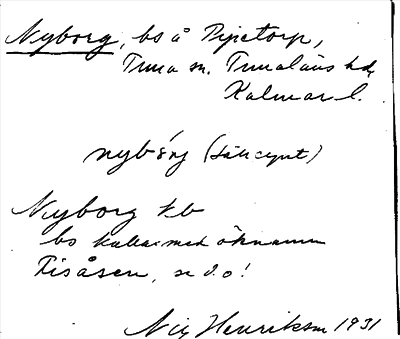 Nyborg, bs å Pipetorp,
Tuna sn. Tunaläns hd,
Kalmar l.
nybórj (sällsynt)
Nyborg kb
bs kallas med öknamn
Risåsen, se d.o!
Nils Henriksson 1931